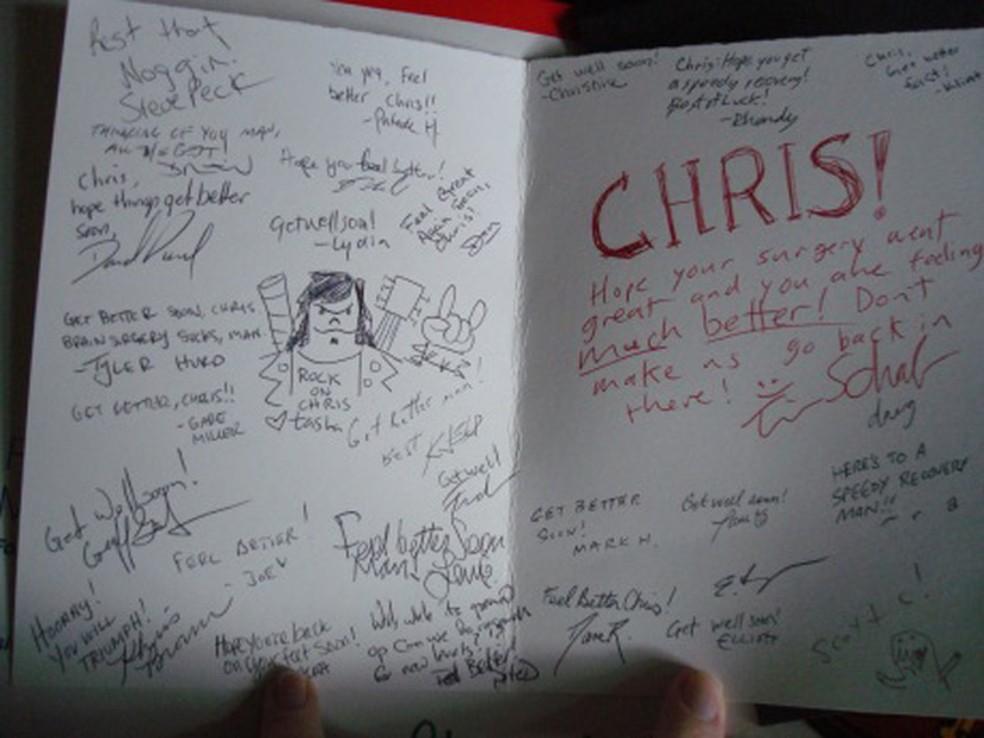 Rest that
Noggin!
Steve Peck
THINKING OF YOU MAN,
Chris,
hope things get better
soon,
feel
better Chris!!
Hope you feel better!
Get well soon!
-Lydia
Feel Great
Again Soon,
Chris!
GET BETTER SOON, CHRIS
BRAIN SURGERY SUCKS, MAN
-TYLER HURD
GET BETTER, CHRIS!!
-GABE
MILLER
ROCK
ON
CHRIS
tasha
Get better man!
BEST
Get well
Get Well soon!
FEEL BETTER!
- JOEY
Feel better Soon
Man!
HOORAY!
YOU WILL
TRIUMPH!
Hope you're back
on your feet soon!
Get well soon!
-Christine
Chris: Hope you get
a speedy recovery!
Best of Luck!
-Rhandy
Chris,
Get better
fast!
CHRIS!
Hope your surgery went
great and you are feeling
much better! Don't
make us go back in
there!
Schaf
HERE'S TO A
SPEEDY RECOVERY
MAN!!
GET BETTER
SOON!
MARK H.
Get well soon!
Feel Better Chris!
Get well soon!
ELLIOTT